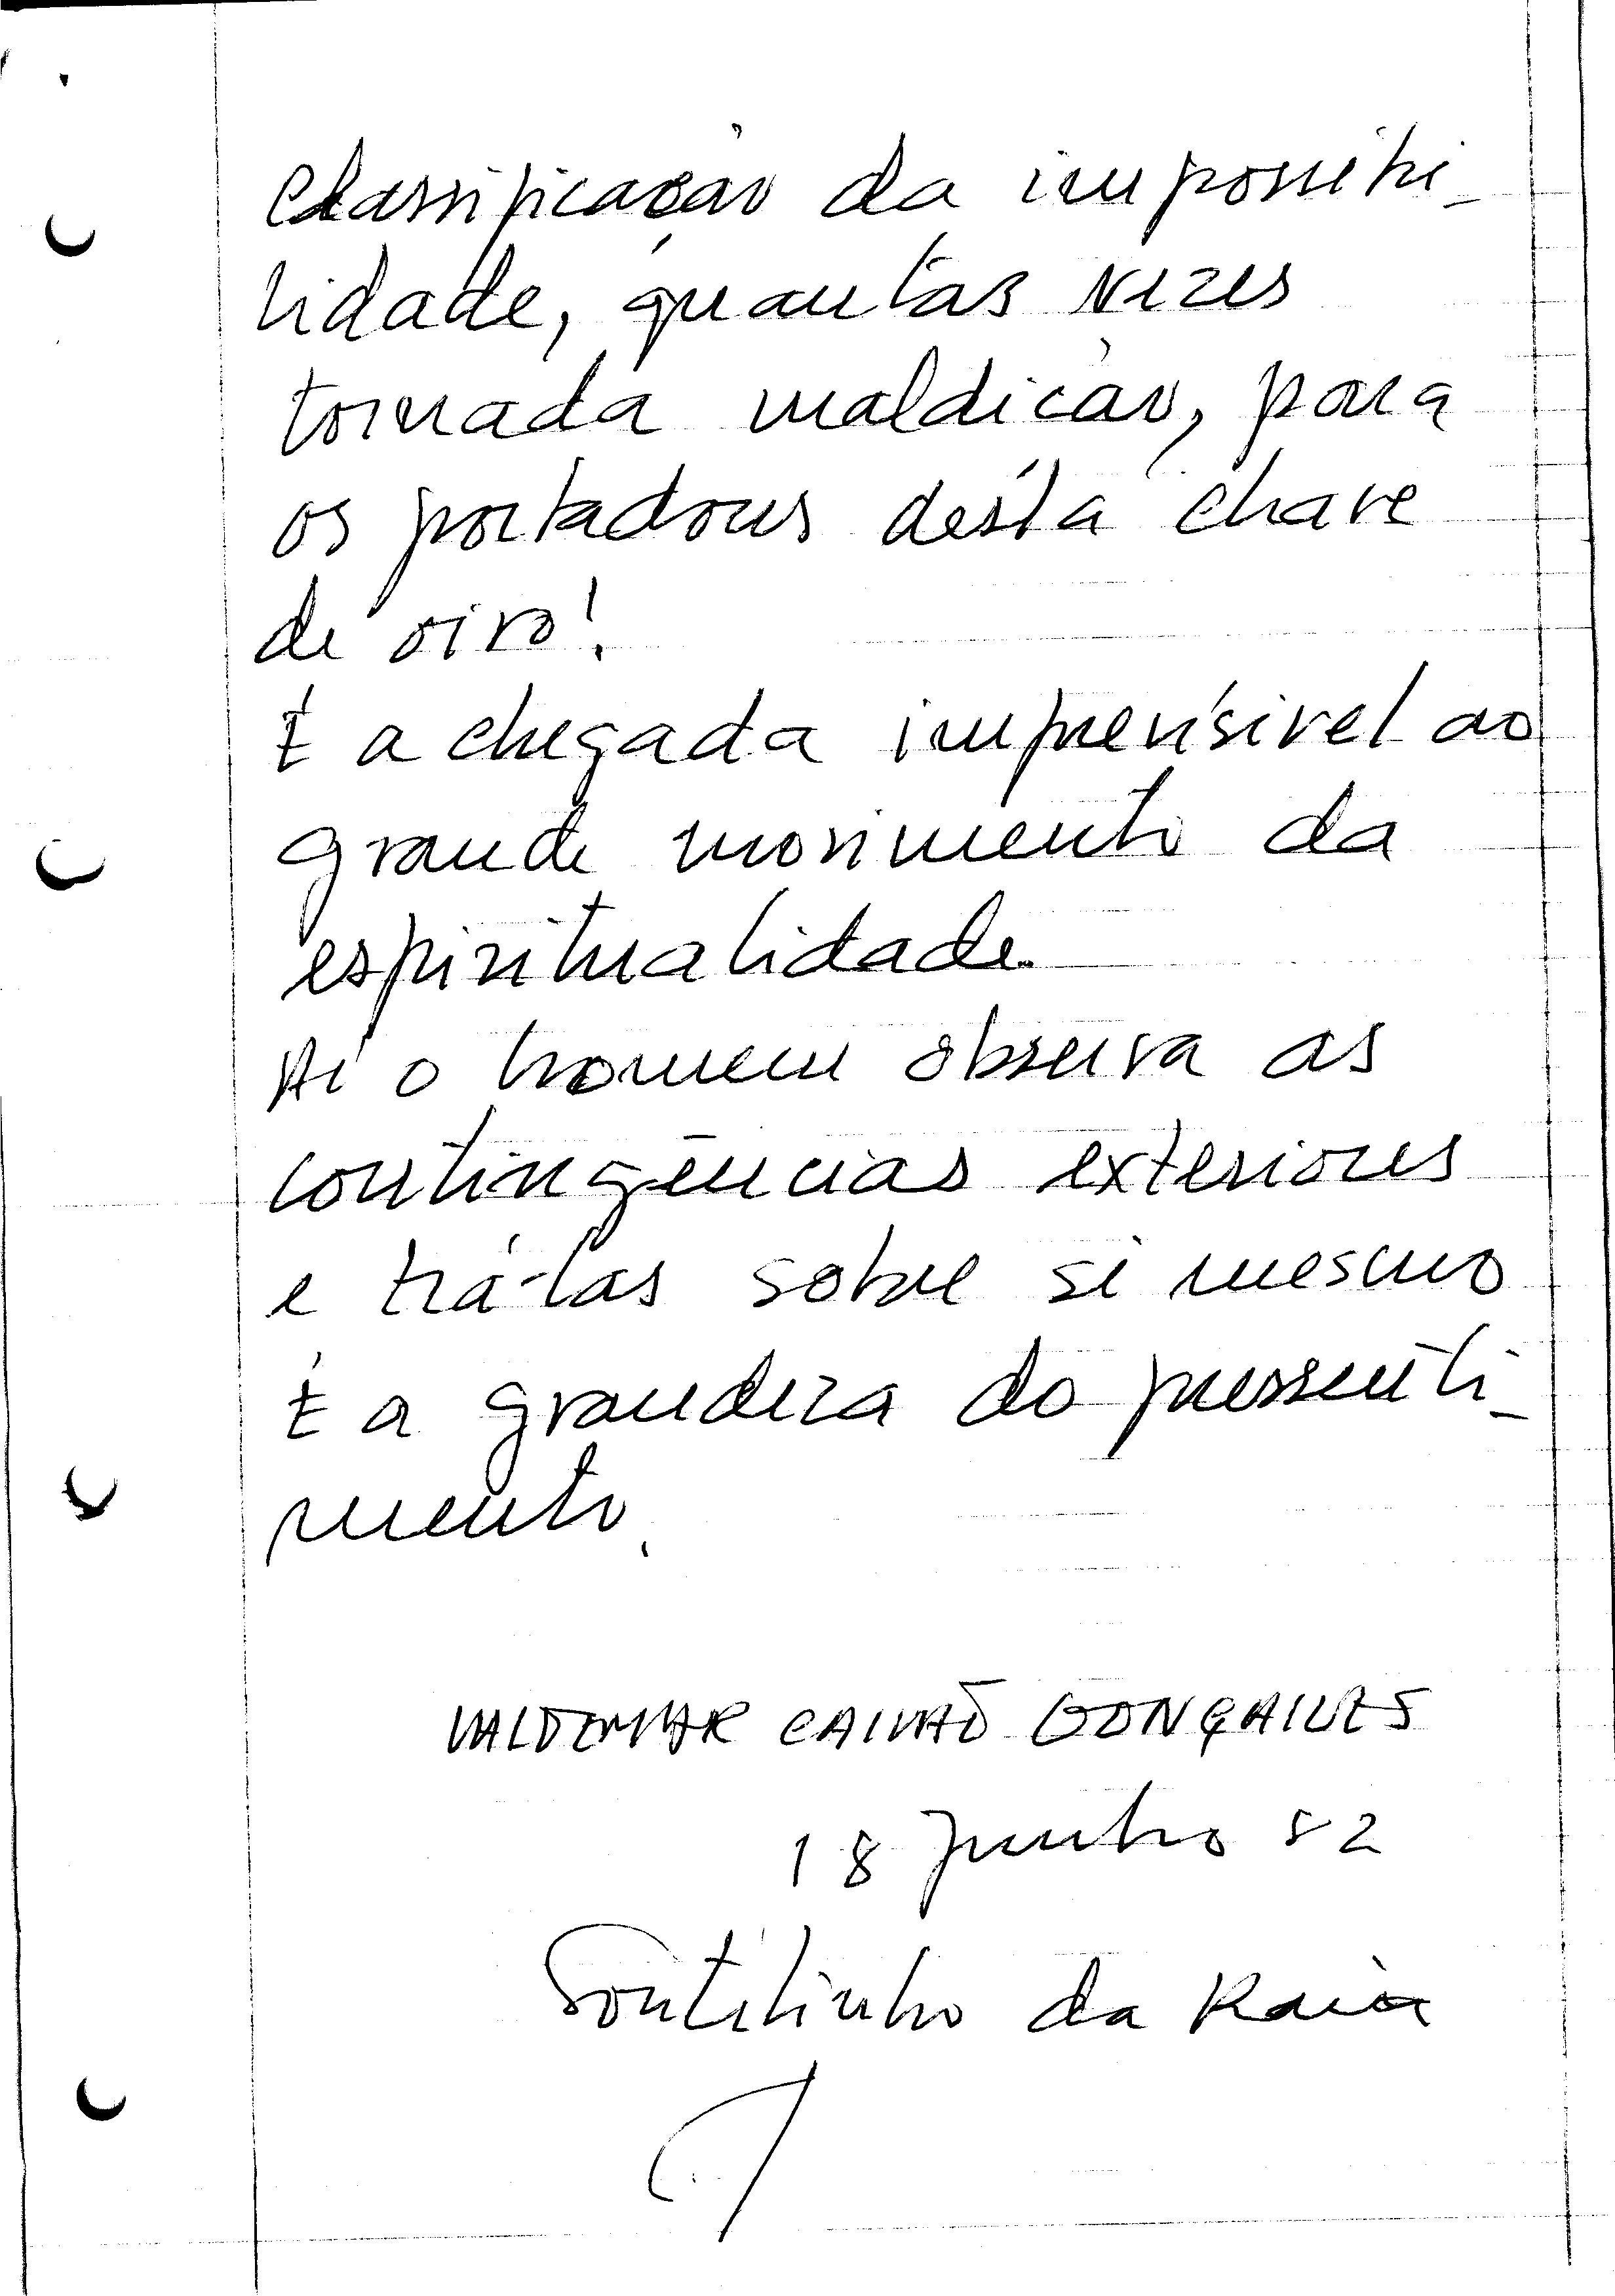 classificação da impossibi-
lidade, quantas vezes
tornada maldição, para
os portadores desta chave
de oiro!
É a chegada imprevisivel ao
grande movimento da
espiritualidade.
Aí o homem observa as
contingências exteriores
e trá-las sobre si mesmo
É a grandeza do pressenti-
mento.
VALDEMAR CAIMÃO GONÇALVES
18 Junho 82
Soutelinho da Raia